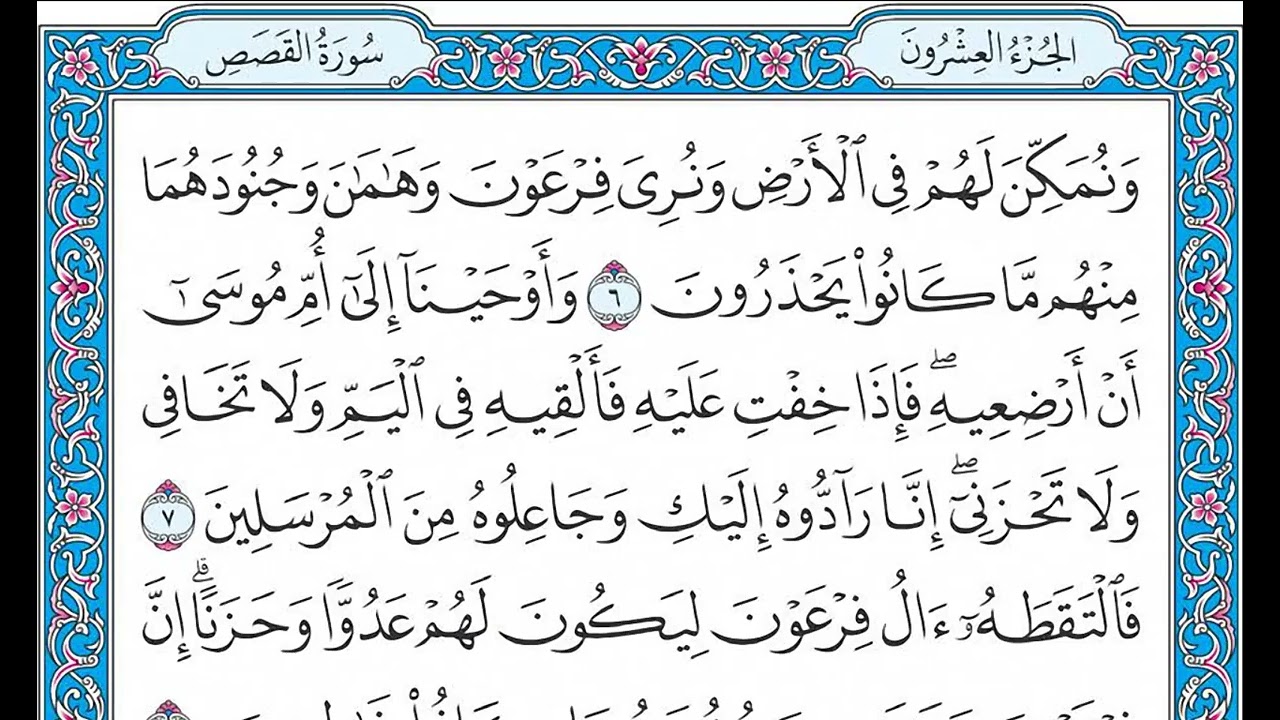 الجُزْءُ العِشْرُونَ
سُورَةُ القَصَصِ
وَنُمَكِّنَ لَهُمْ فِى ٱلْأَرْضِ وَنُرِىَ فِرْعَوْنَ وَهَـٰمَـٰنَ وَجُنُودَهُمَا
مِنْهُم مَّا كَانُوا۟ يَحْذَرُونَ ٦ وَأَوْحَيْنَآ إِلَىٰٓ أُمِّ مُوسَىٰٓ
أَنْ أَرْضِعِيهِ ۖ فَإِذَا خِفْتِ عَلَيْهِ فَأَلْقِيهِ فِى ٱلْيَمِّ وَلَا تَخَافِى
وَلَا تَحْزَنِىٓ ۖ إِنَّا رَآدُّوهُ إِلَيْكِ وَجَاعِلُوهُ مِنَ ٱلْمُرْسَلِينَ ٧
فَٱلْتَقَطَهُۥٓ ءَالُ فِرْعَوْنَ لِيَكُونَ لَهُمْ عَدُوًّا وَحَزَنًا ۗ إِنَّ